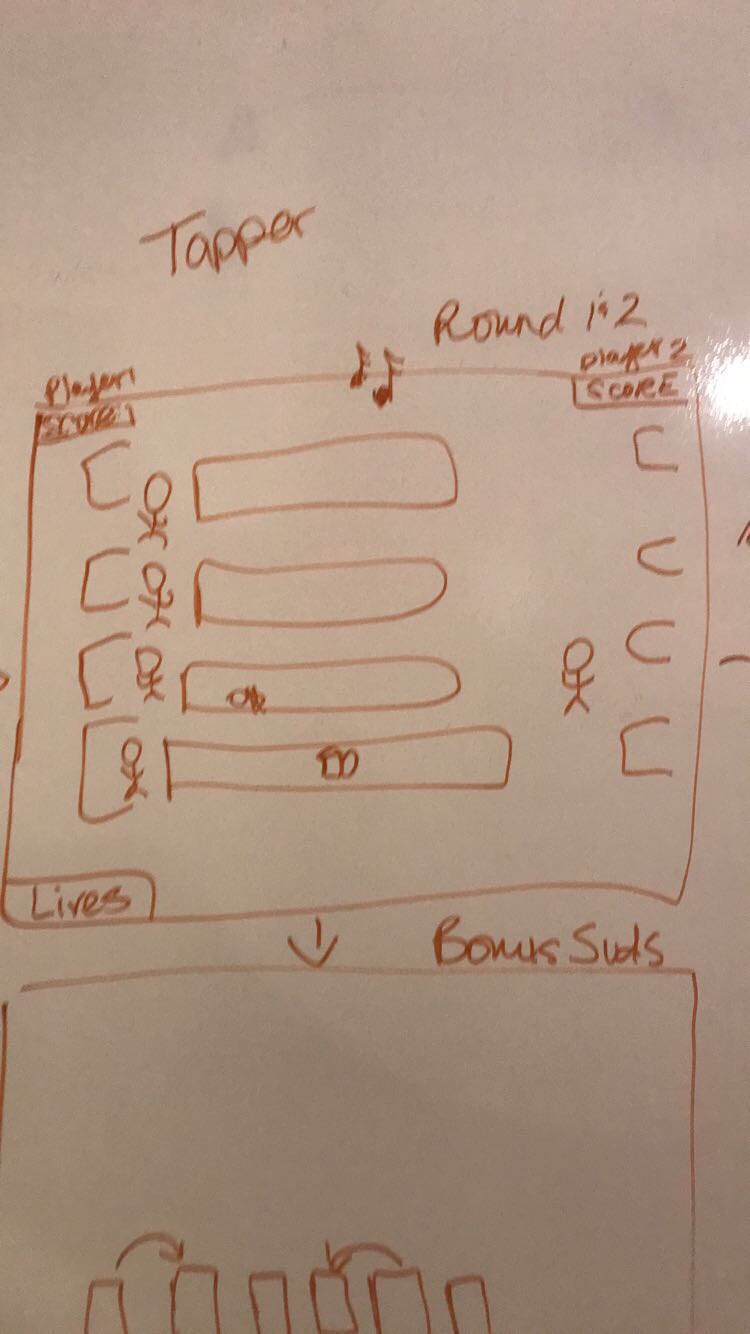 Tapper
Round 1 & 2
Player 1
SCORE 1
player 2
SCORE
Lives
Bonus Suds